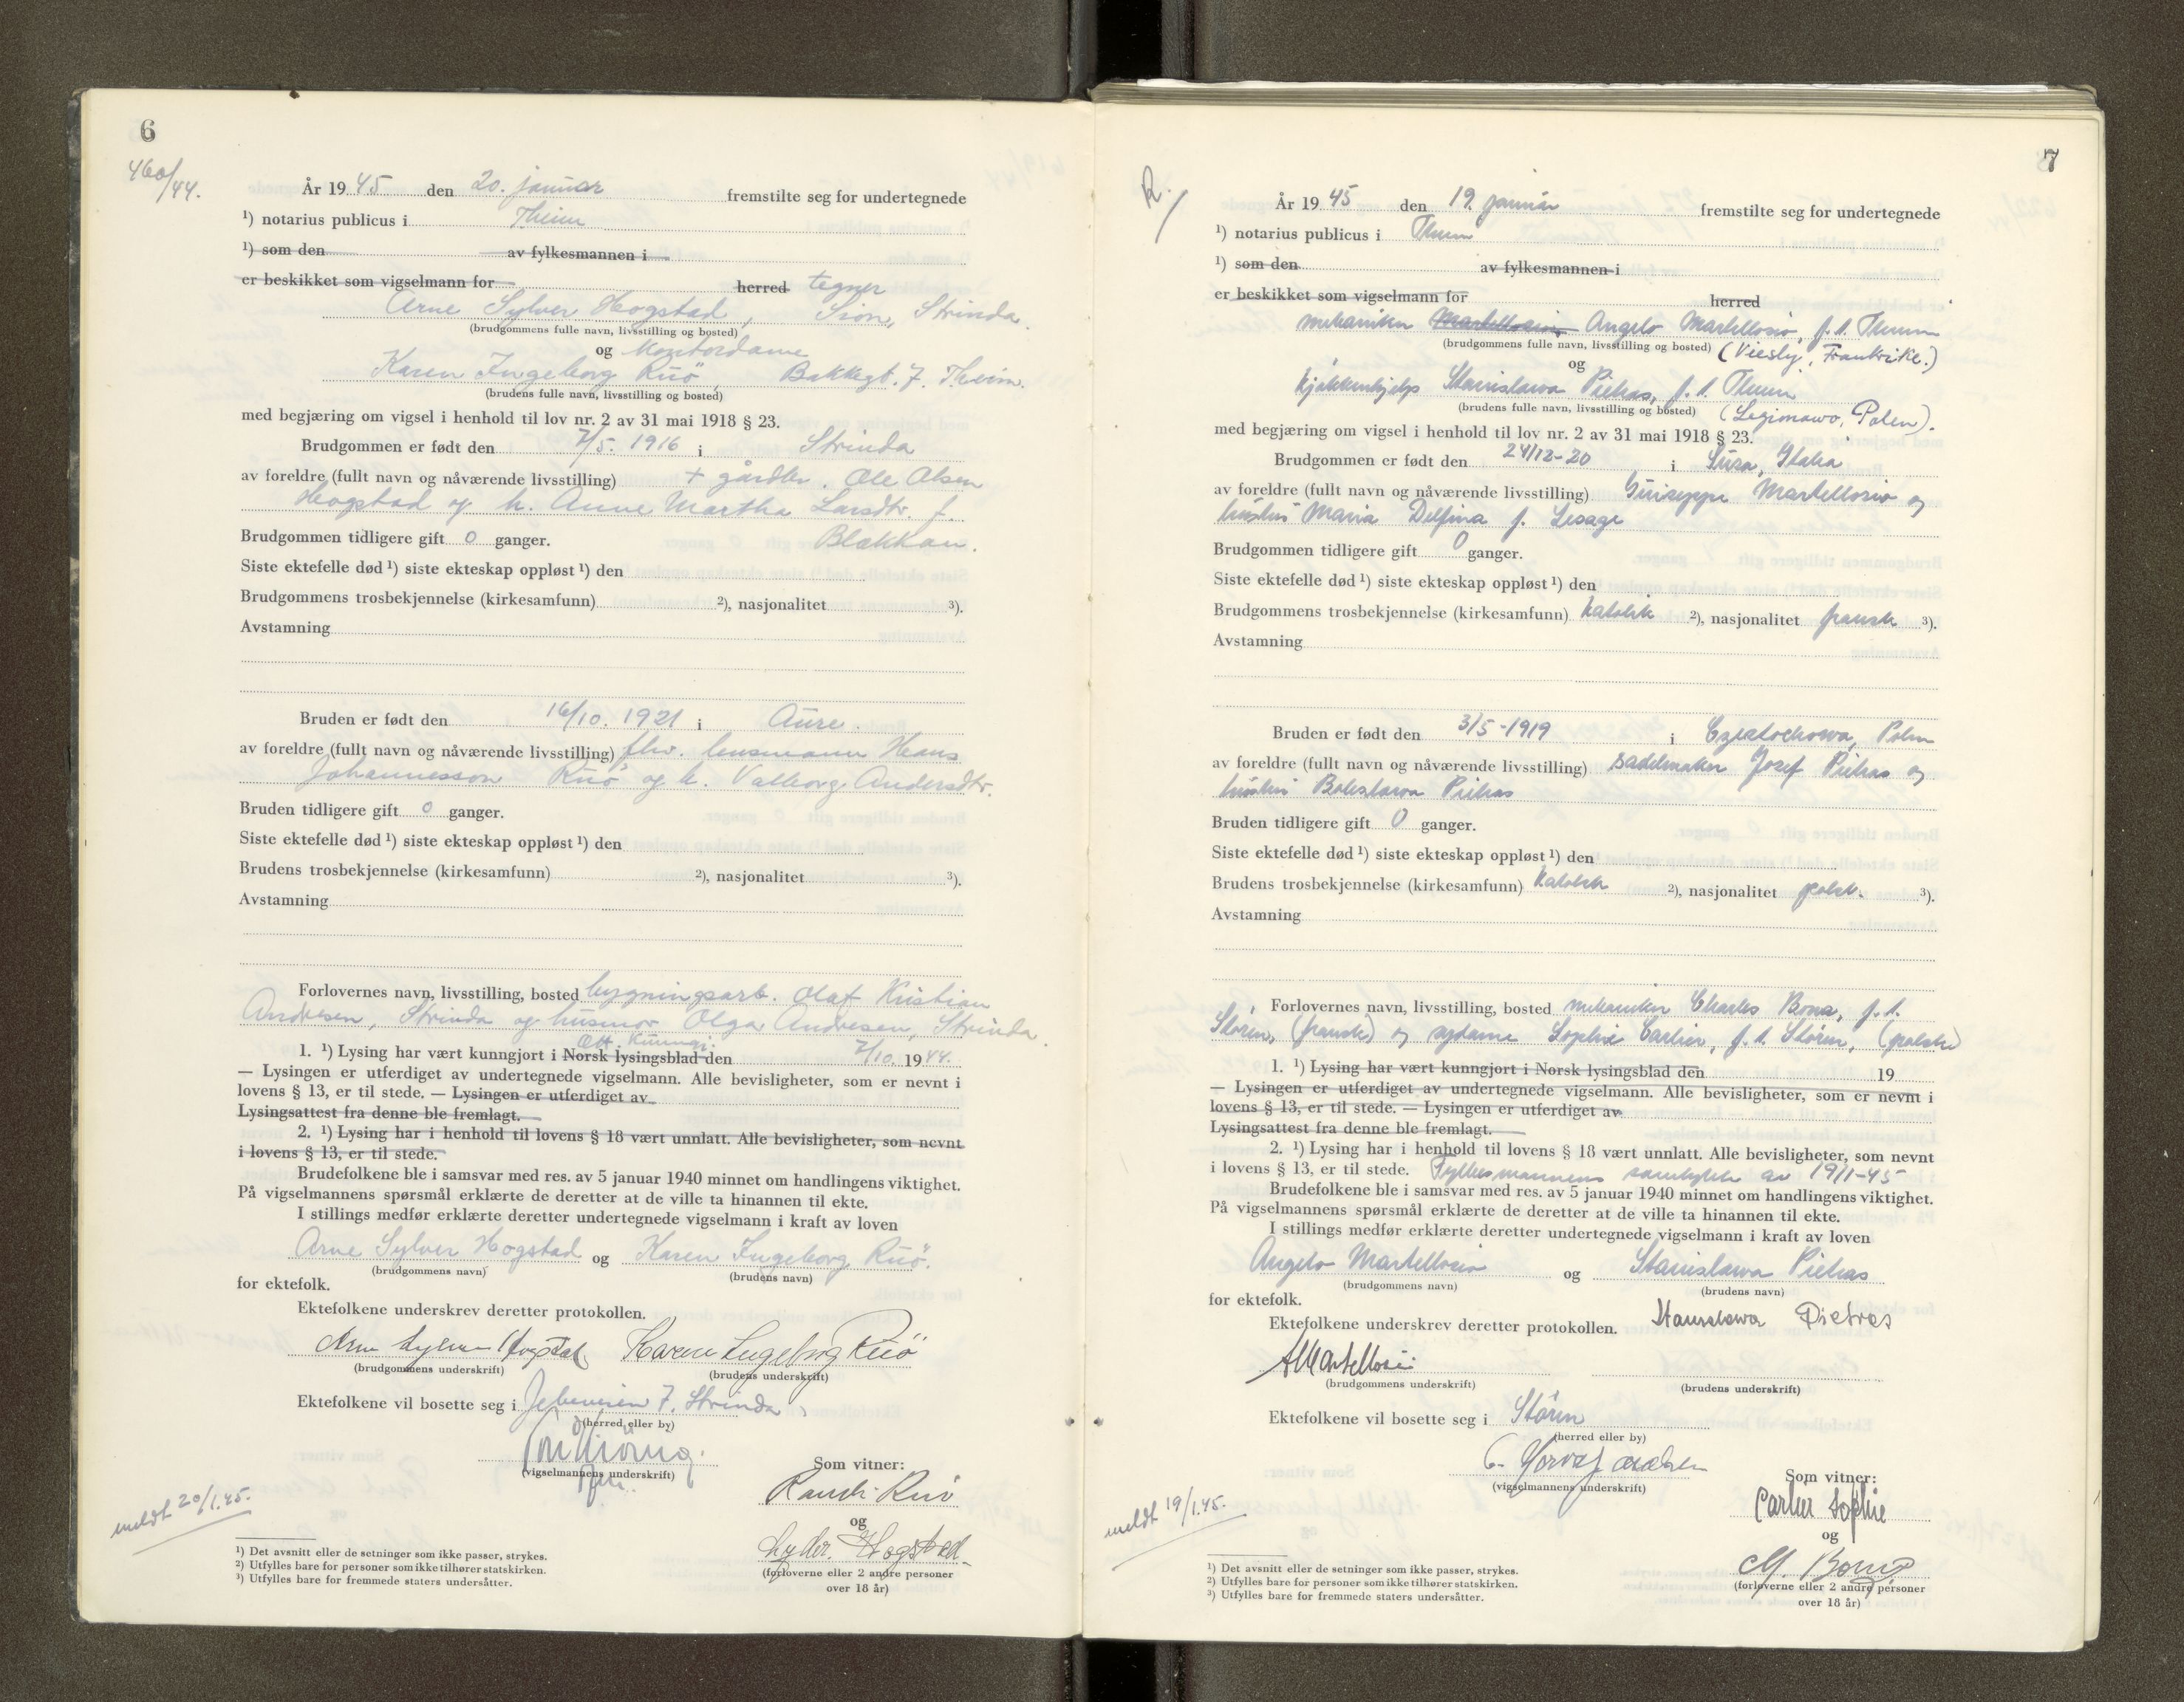 6
460/44.
År 1945 den 20. januar fremstilte seg for undertegnede
¹) notarius publicus i Trheim
¹) som den av fylkesmannen i
er beskikket som vigselmann for herred tegner
Arne Sylver Hogstad, Sion, Strinda.
(brudgommens fulle navn, livsstilling og bosted)
og kontordame
Karen Ingeborg Ruö, Bakkegt. 7. Trheim.
(brudens fulle navn, livsstilling og bosted)
med begjæring om vigsel i henhold til lov nr. 2 av 31 mai 1918 § 23.
Brudgommen er født den 7/5. 1916 i Strinda
av foreldre (fullt navn og nåværende livsstilling) + gårdbr. Ole Olsen
Hogstad og h. Anne Martha Larsdtr. f.
Brudgommen tidligere gift 0 ganger. Blekkan.
Siste ektefelle død ¹) siste ekteskap oppløst ¹) den
Brudgommens trosbekjennelse (kirkesamfunn) ²), nasjonalitet ³).
Avstamning
Bruden er født den 16/10. 1921 i Aure.
av foreldre (fullt navn og nåværende livsstilling) fhv. lensmann Hans
Johannesson Ruö og h. Valborg Andersdtr.
Bruden tidligere gift 0 ganger.
Siste ektefelle død ¹) siste ekteskap oppløst ¹) den
Brudens trosbekjennelse (kirkesamfunn) ²), nasjonalitet ³).
Avstamning
Forlovernes navn, livsstilling, bosted bygningsarb. Olaf Kristian
Andresen, Strinda og husmor Olga Andresen, Strinda.
Off. Kunngj.
1. ¹) Lysing har vært kunngjort i Norsk lysingsblad den 7/10. 1944.
— Lysingen er utferdiget av undertegnede vigselmann. Alle bevisligheter, som er nevnt i
lovens § 13, er til stede. — Lysingen er utferdiget av
Lysingsattest fra denne ble fremlagt.
2. ¹) Lysing har i henhold til lovens § 18 vært unnlatt. Alle bevisligheter, som nevnt
i lovens § 13, er til stede.
Brudefolkene ble i samsvar med res. av 5 januar 1940 minnet om handlingens viktighet.
På vigselmannens spørsmål erklærte de deretter at de ville ta hinannen til ekte.
I stillings medfør erklærte deretter undertegnede vigselmann i kraft av loven
Arne Sylver Hogstad og Karen Ingeborg Ruö.
(brudgommens navn) (brudens navn)
for ektefolk.
Ektefolkene underskrev deretter protokollen.
Arne Sylver Hogstad Karen Ingeborg Ruö
(brudgommens underskrift) (brudens underskrift)
Ektefolkene vil bosette seg i 7, Strinda
(herred eller by)
(vigselmannens underskrift)
Som vitner:
Randi Ruö
og
Lyder Hogstad
(forloverne eller 2 andre personer
over 18 år)
meldt 20/1.45.
¹) Det avsnitt eller de setninger som ikke passer, strykes.
²) Utfylles bare for personer som ikke tilhører statskirken.
³) Utfylles bare for fremmede staters undersåtter.
7
R.
År 1945 den 19. januar fremstilte seg for undertegnede
¹) notarius publicus i Thrm
¹) som den av fylkesmannen i
er beskikket som vigselmann for herred
mekaniker Martellosio, Angelo Martellosio, f. t. Thrm
(brudgommens fulle navn, livsstilling og bosted) (Viesly, Frankrike.)
og
kjøkkenhjelp Stanislawa Piekas, f. t. Thrm
(brudens fulle navn, livsstilling og bosted) (Legionawo, Polen).
med begjæring om vigsel i henhold til lov nr. 2 av 31 mai 1918 § 23.
Brudgommen er født den 24/12-20 i Susa, Italia
av foreldre (fullt navn og nåværende livsstilling) Guiseppe Martellosio og
hustru Maria Delfina f. Lesage
Brudgommen tidligere gift 0 ganger.
Siste ektefelle død ¹) siste ekteskap oppløst ¹) den
Brudgommens trosbekjennelse (kirkesamfunn) katolsk ²), nasjonalitet fransk ³).
Avstamning
Bruden er født den 3/5-1919 i Czestochowa, Polen
av foreldre (fullt navn og nåværende livsstilling) sadelmaker Jozef Piekas og
hustru Boleslawa Piekas
Bruden tidligere gift 0 ganger.
Siste ektefelle død ¹) siste ekteskap oppløst ¹) den
Brudens trosbekjennelse (kirkesamfunn) katolsk ²), nasjonalitet polsk. ³).
Avstamning
Forlovernes navn, livsstilling, bosted mekaniker Charles Bona, f. t.
Støren, (fransk) og sydame Sophie Carlier, f. t. Støren, (polsk)
1. ¹) Lysing har vært kunngjort i Norsk lysingsblad den 19
— Lysingen er utferdiget av undertegnede vigselmann. Alle bevisligheter, som er nevnt i
lovens § 13, er til stede. — Lysingen er utferdiget av
Lysingsattest fra denne ble fremlagt.
2. ¹) Lysing har i henhold til lovens § 18 vært unnlatt. Alle bevisligheter, som nevnt
i lovens § 13, er til stede. Fylkesmannens samtykke av 19/1-45
Brudefolkene ble i samsvar med res. av 5 januar 1940 minnet om handlingens viktighet.
På vigselmannens spørsmål erklærte de deretter at de ville ta hinannen til ekte.
I stillings medfør erklærte deretter undertegnede vigselmann i kraft av loven
Angelo Martellosio og Stanislawa Piekas
(brudgommens navn) (brudens navn)
for ektefolk.
Ektefolkene underskrev deretter protokollen. Stanislawa Pietras
AMartellosio
(brudgommens underskrift) (brudens underskrift)
Ektefolkene vil bosette seg i Støren
(herred eller by)
(vigselmannens underskrift)
Som vitner:
Carlier Sophie
og
(forloverne eller 2 andre personer
over 18 år)
meldt 19/1.45.
¹) Det avsnitt eller de setninger som ikke passer, strykes.
²) Utfylles bare for personer som ikke tilhører statskirken.
³) Utfylles bare for fremmede staters undersåtter.